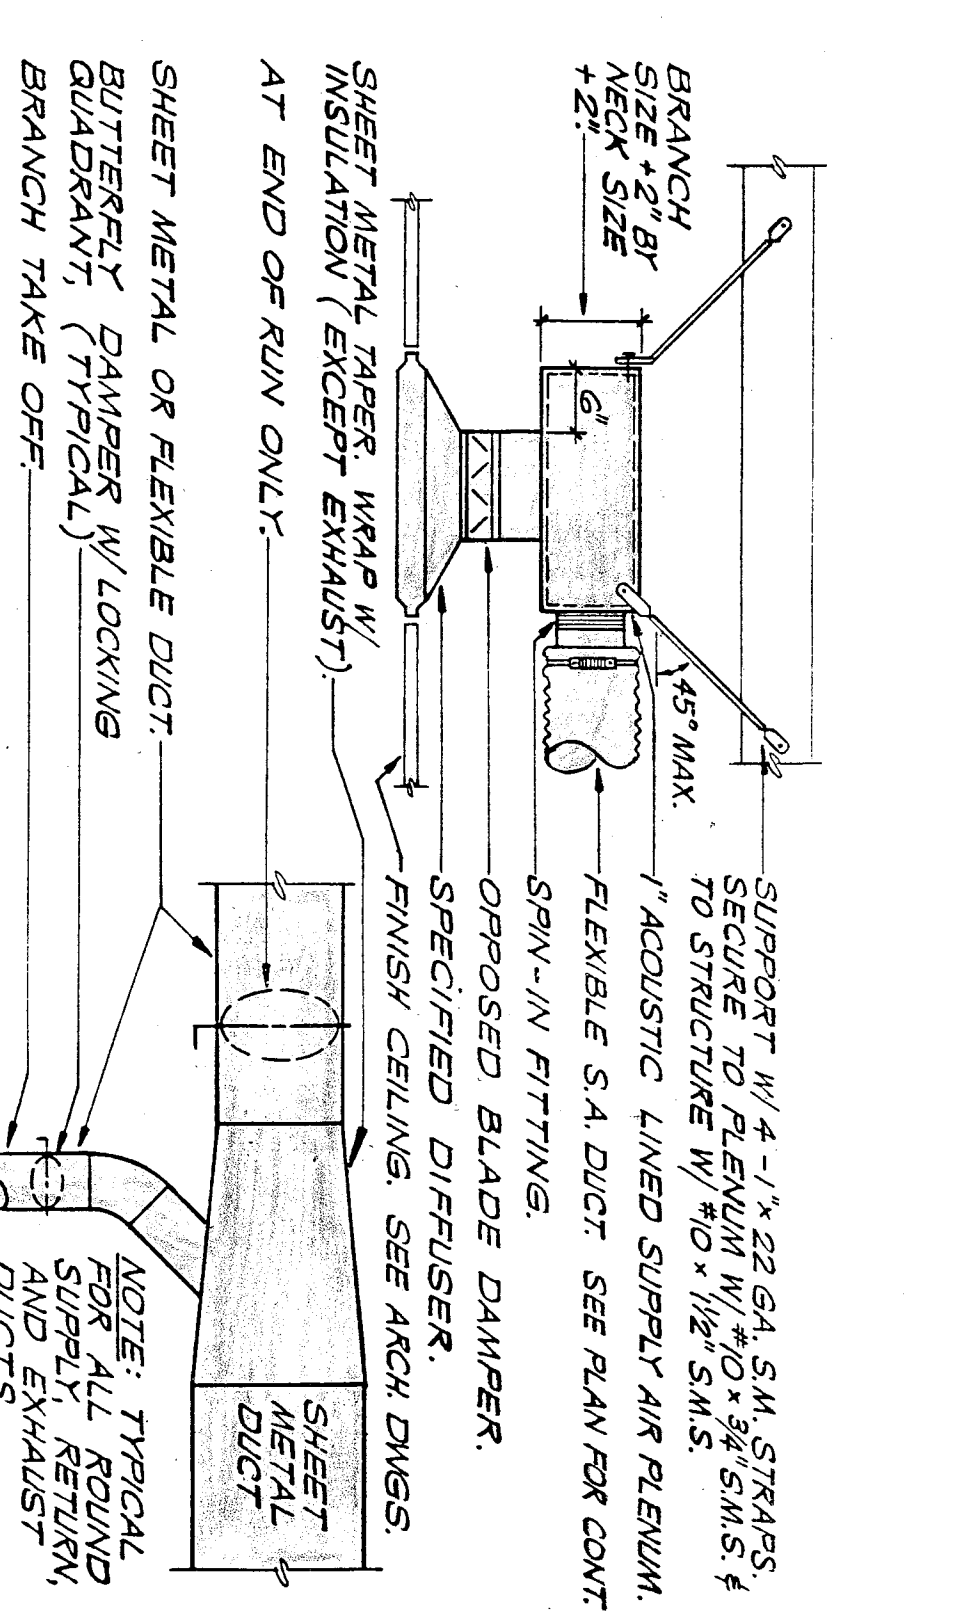 BRANCH
SIZE +2" BY
NECK SIZE
+2".
6"
45° MAX.
SUPPORT W/ 4 - 1" x 22 GA. S.M. STRAPS.
SECURE TO PLENUM W/ #10 x 3/4" S.M.S. &
TO STRUCTURE W/ #10 x 1/2" S.M.S.
1" ACOUSTIC LINED SUPPLY AIR PLENUM.
FLEXIBLE S.A. DUCT. SEE PLAN FOR CONT.
SPIN-IN FITTING.
OPPOSED BLADE DAMPER.
SPECIFIED DIFFUSER.
FINISH CEILING. SEE ARCH. DWGS.
SHEET METAL TAPER. WRAP W/
INSULATION (EXCEPT EXHAUST).
AT END OF RUN ONLY.
SHEET METAL OR FLEXIBLE DUCT.
BUTTERFLY DAMPER W/ LOCKING
QUADRANT, (TYPICAL)
BRANCH TAKE OFF.
SHEET
METAL
DUCT
NOTE: TYPICAL
FOR ALL ROUND
SUPPLY, RETURN,
AND EXHAUST
DUCTS